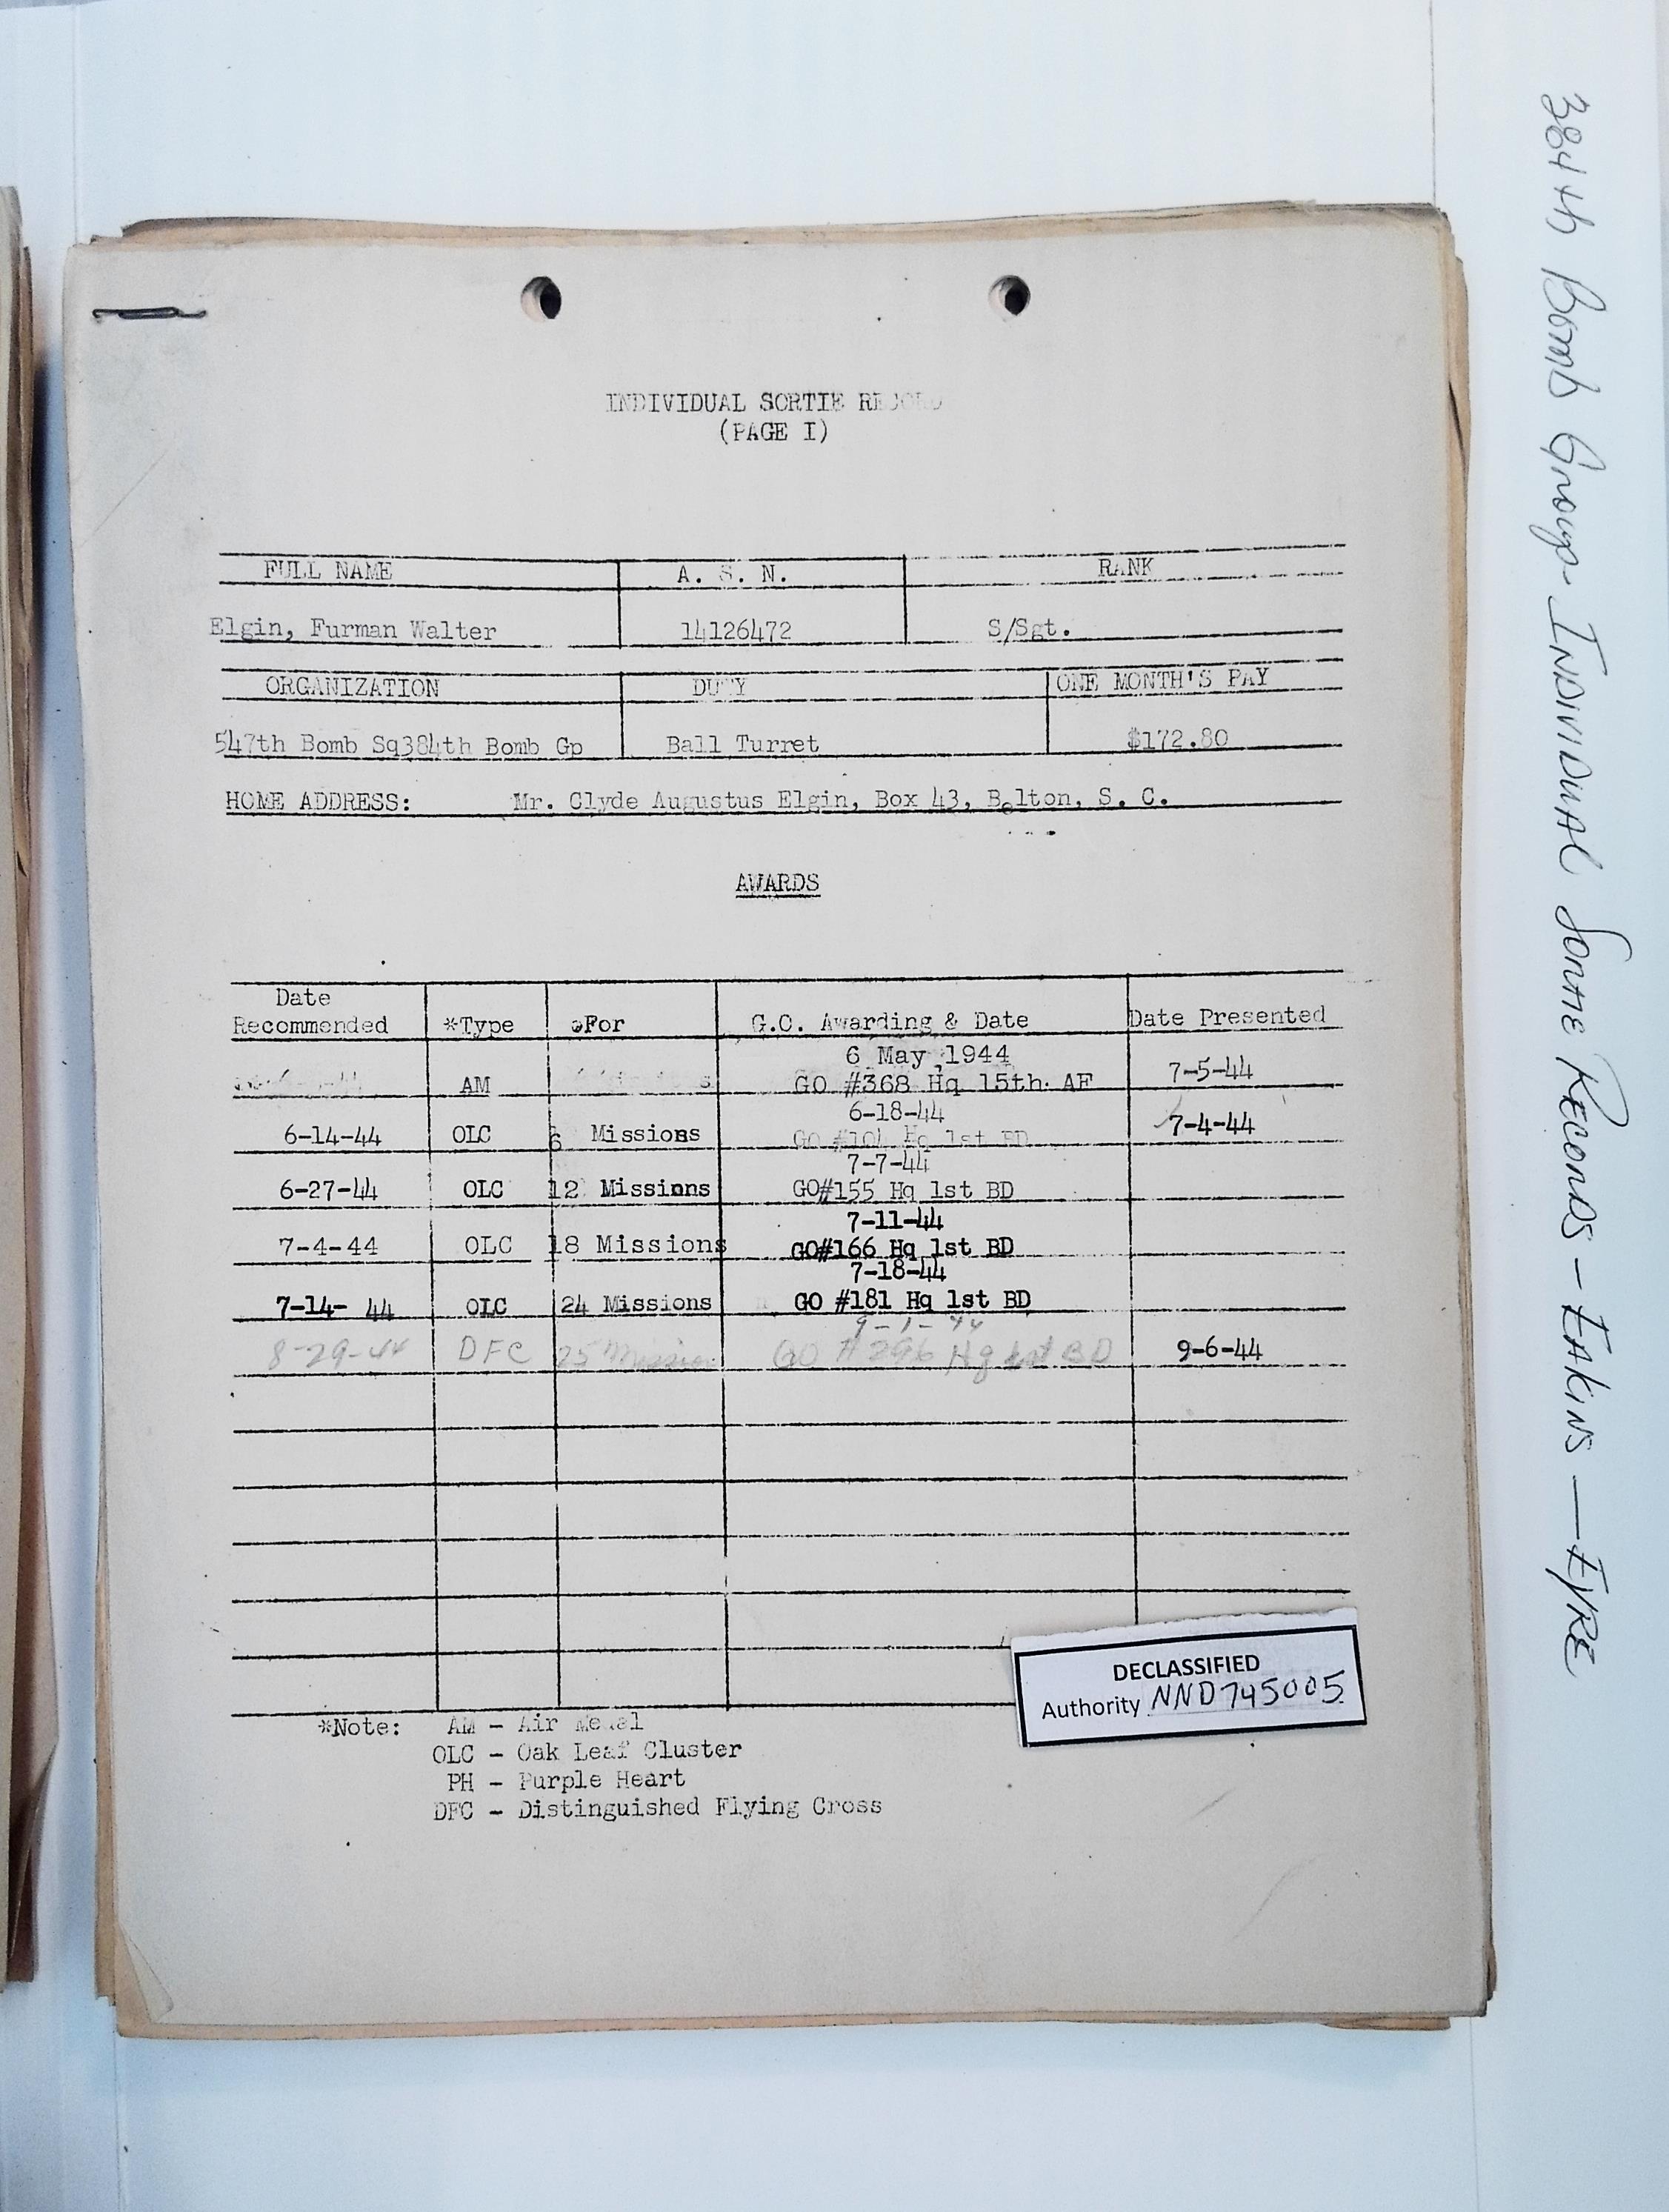 INDIVIDUAL SORTIE RECORD
(PAGE I)
FULL NAME A. S. N. RANK
Elgin, Furman Walter 14126472 S/Sgt.
ORGANIZATION DUTY ONE MONTH'S PAY
547th Bomb Sq384th Bomb Gp Ball Turret $172.80
HOME ADDRESS: Mr. Clyde Augustus Elgin, Box 43, Belton, S. C.
AWARDS
Date
Recommended *Type For G.O. Awarding & Date Date Presented
6 May 1944
AM GO #368 Hq 15th AF 7-5-44
6-18-44
6-14-44 OLC 6 Missions GO #104 Hq 1st BD 7-4-44
7-7-44
6-27-44 OLC 12 Missinns GO#155 Hq 1st BD
7-11-44
7-4-44 OLC 18 Missions GO#166 Hq 1st BD
7-18-44
7-14- 44 OLC 24 Missions GO #181 Hq 1st BD
9-1-44
8-29-44 DFC 25 Mission GO #296 Hq 1st BD 9-6-44
*Note: AM - Air Medal
OLC - Oak Leaf Cluster
PH - Purple Heart
DFC - Distinguished Flying Cross
DECLASSIFIED
Authority NND745005
384th Bomb Group - INDIVIDUAL SORTIE RECORDS - EAKINS — EYRE